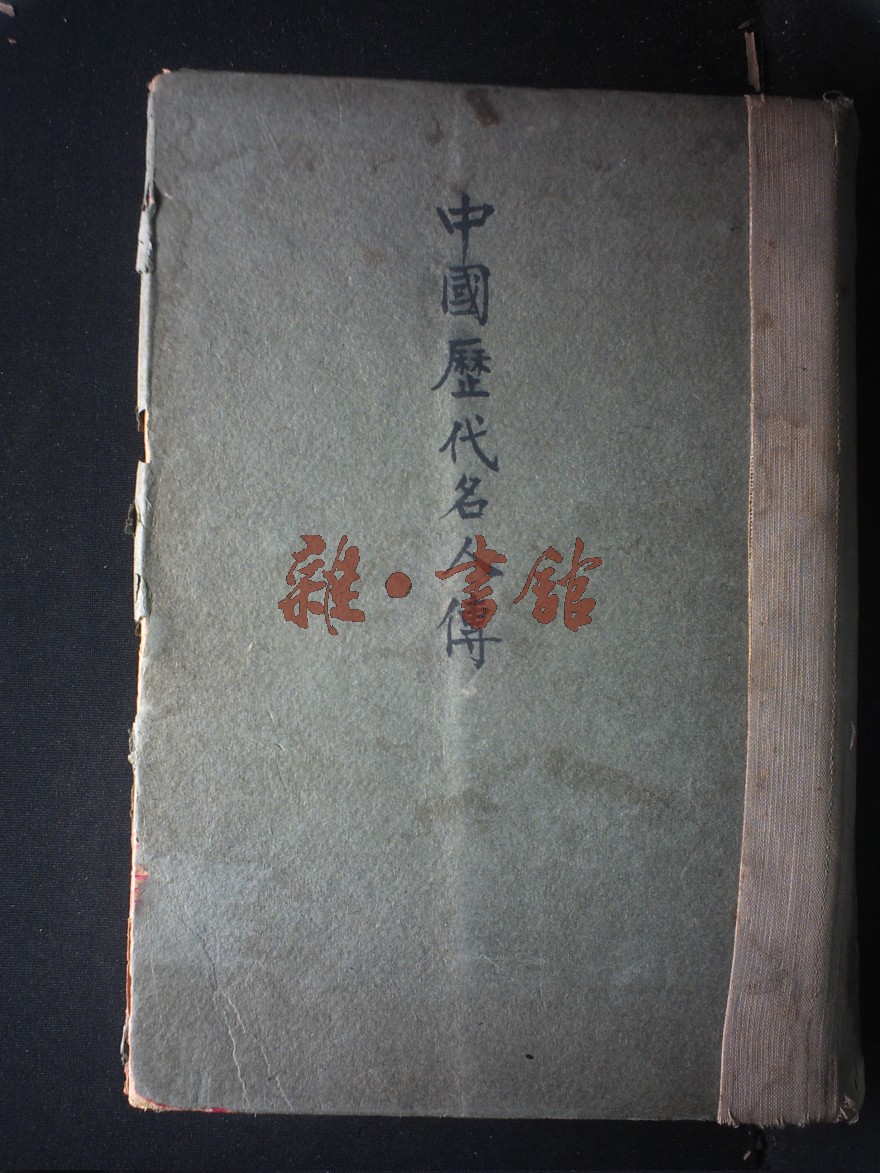 中國歷代名人傳
雜·書館